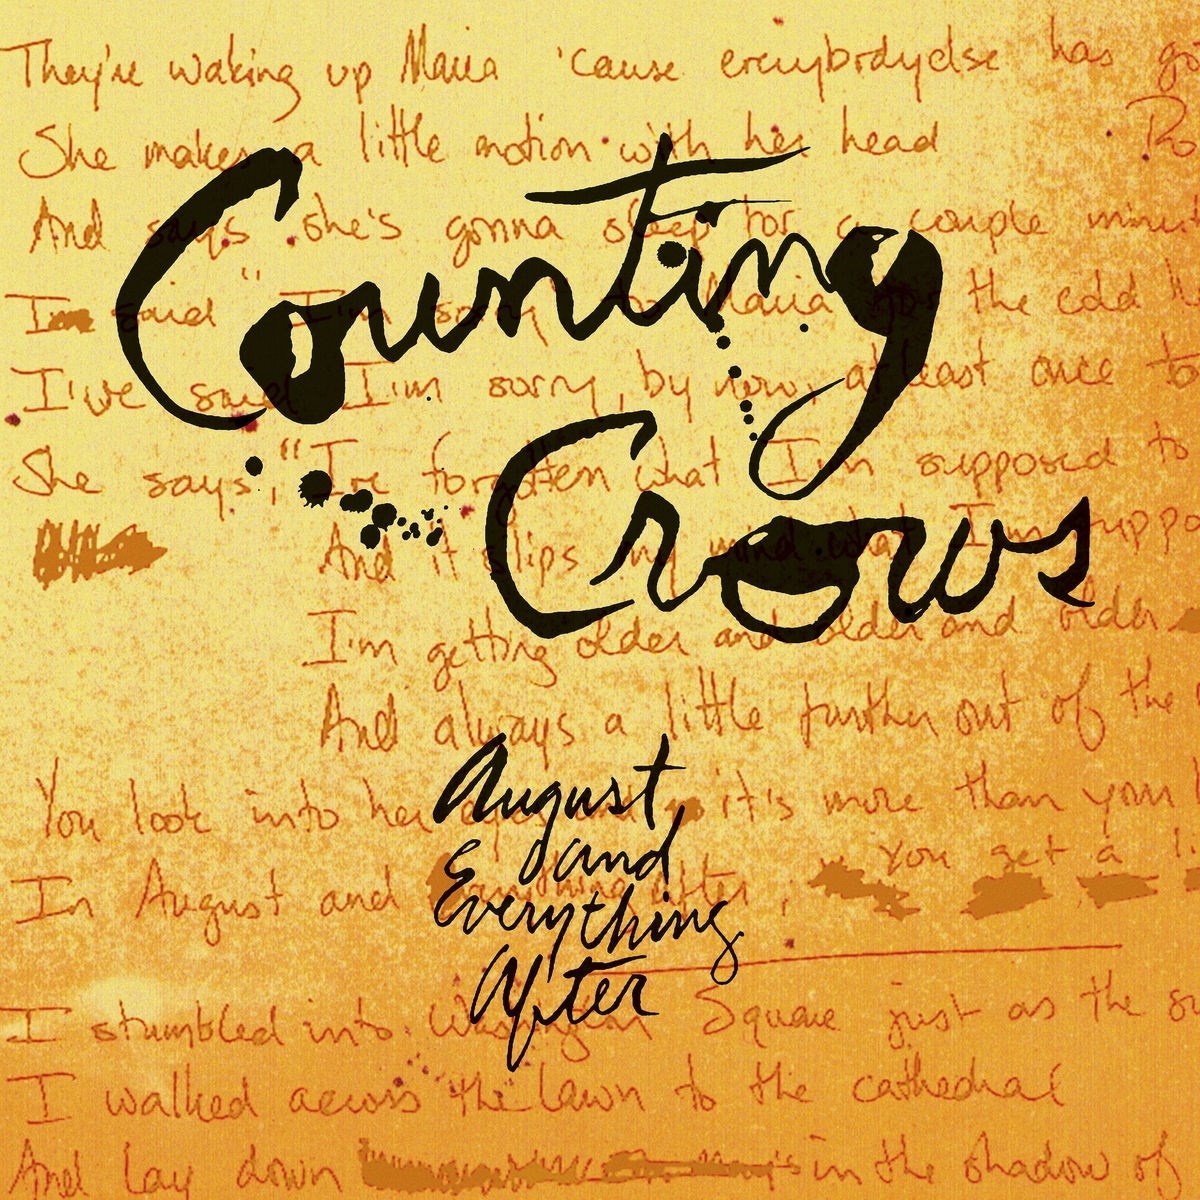 They're waking up Maria 'cause everybodyelse has go
She makes a little motion with her head Ro
And says she's gonna sleep for a couple minu
I'm said "I'm sorry to Maria for the cold
I've said I'm sorry, by now, at least once to
She says, "I've forgotten what I'm supposed to
And it slips my mind what I'm suppo
I'm getting older and older and older
And always a little further out of the
You look into her eyes it's more than your
You get a li
In August and Everything After,
I stumbled into Washington Square just as the su
I walked across the lawn to the cathedral
And lay down in the shadow of
Counting
Crows
August
and
Everything
After